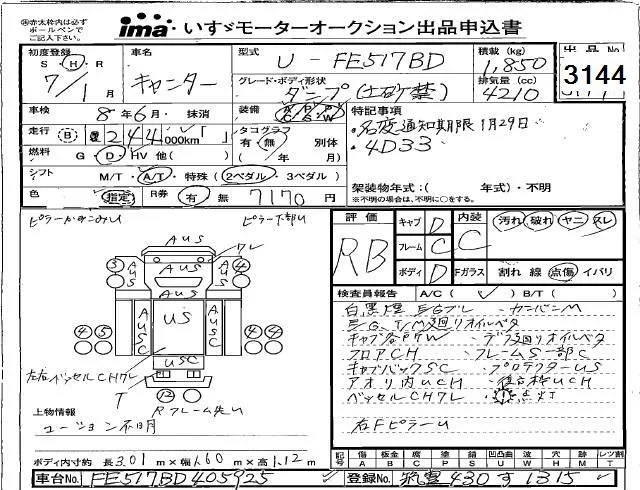 ㊟赤太枠内は必ず
ボールペンで
ご記入下さい。
ima いすゞモーターオークション出品申込書
初度登録 S・H・R 7/1月
車名 キャンター
型式 U-FE517BD
積載(kg) 1,850
出品No 3144
グレード・ボディ形状 ダンプ(土砂禁)
排気量(cc) 4210
車検 8年6月・抹消
装備
特記事項
・名変通知期限1月29日
・4D33
走行 244,000km「 」
タコグラフ 有・無 別体
( 年/ 月)
燃料 G・D・HV 他( )
シフト M/T・A/T・特殊(2ペダル・3ペダル)
架装物年式:( 年式)・不明
※不明の場合は、不明に○をする。
色 指定
R券 有・無 7170円
ピラーかすこみU
ピラー下部U
AUS
クレ
AUS
3
4
AUS
AUS
AUS
US
AUSC
AUSC
4
5
4
4
USC
左右ベッセルCHクレ
T
12
Rフレーム先U
上物情報
ユーション不明
ボディ内寸約 長3.01m×幅1.60m×高1.12m
評価 RB
キャブ D
フレーム C
ボディ D
内装 C
汚れ・破れ・ヤニ・スレ
Fガラス 割れ 線 点傷 イバリ
検査員報告 A/C( ✓ ) B/T( )
白黒煙 E/Gブレ ・カンバンM
E/G、T/M廻りオイルベタ
キャブ各所W ・デフ廻りオイルベタ
フロアCH ・フレームS一部C
キャブバックSC ・プロテクターUS
アオリ内UCH ・後台枠UCH
ベッセルCHクレ 点灯
右FピラーU
記号 傷 板金 腐 サビ 凹 凸凹曲 波 穴 汚 レツ割
A B C P S U W H M T
車台No. FE517BD405925
登録No. 430す1315